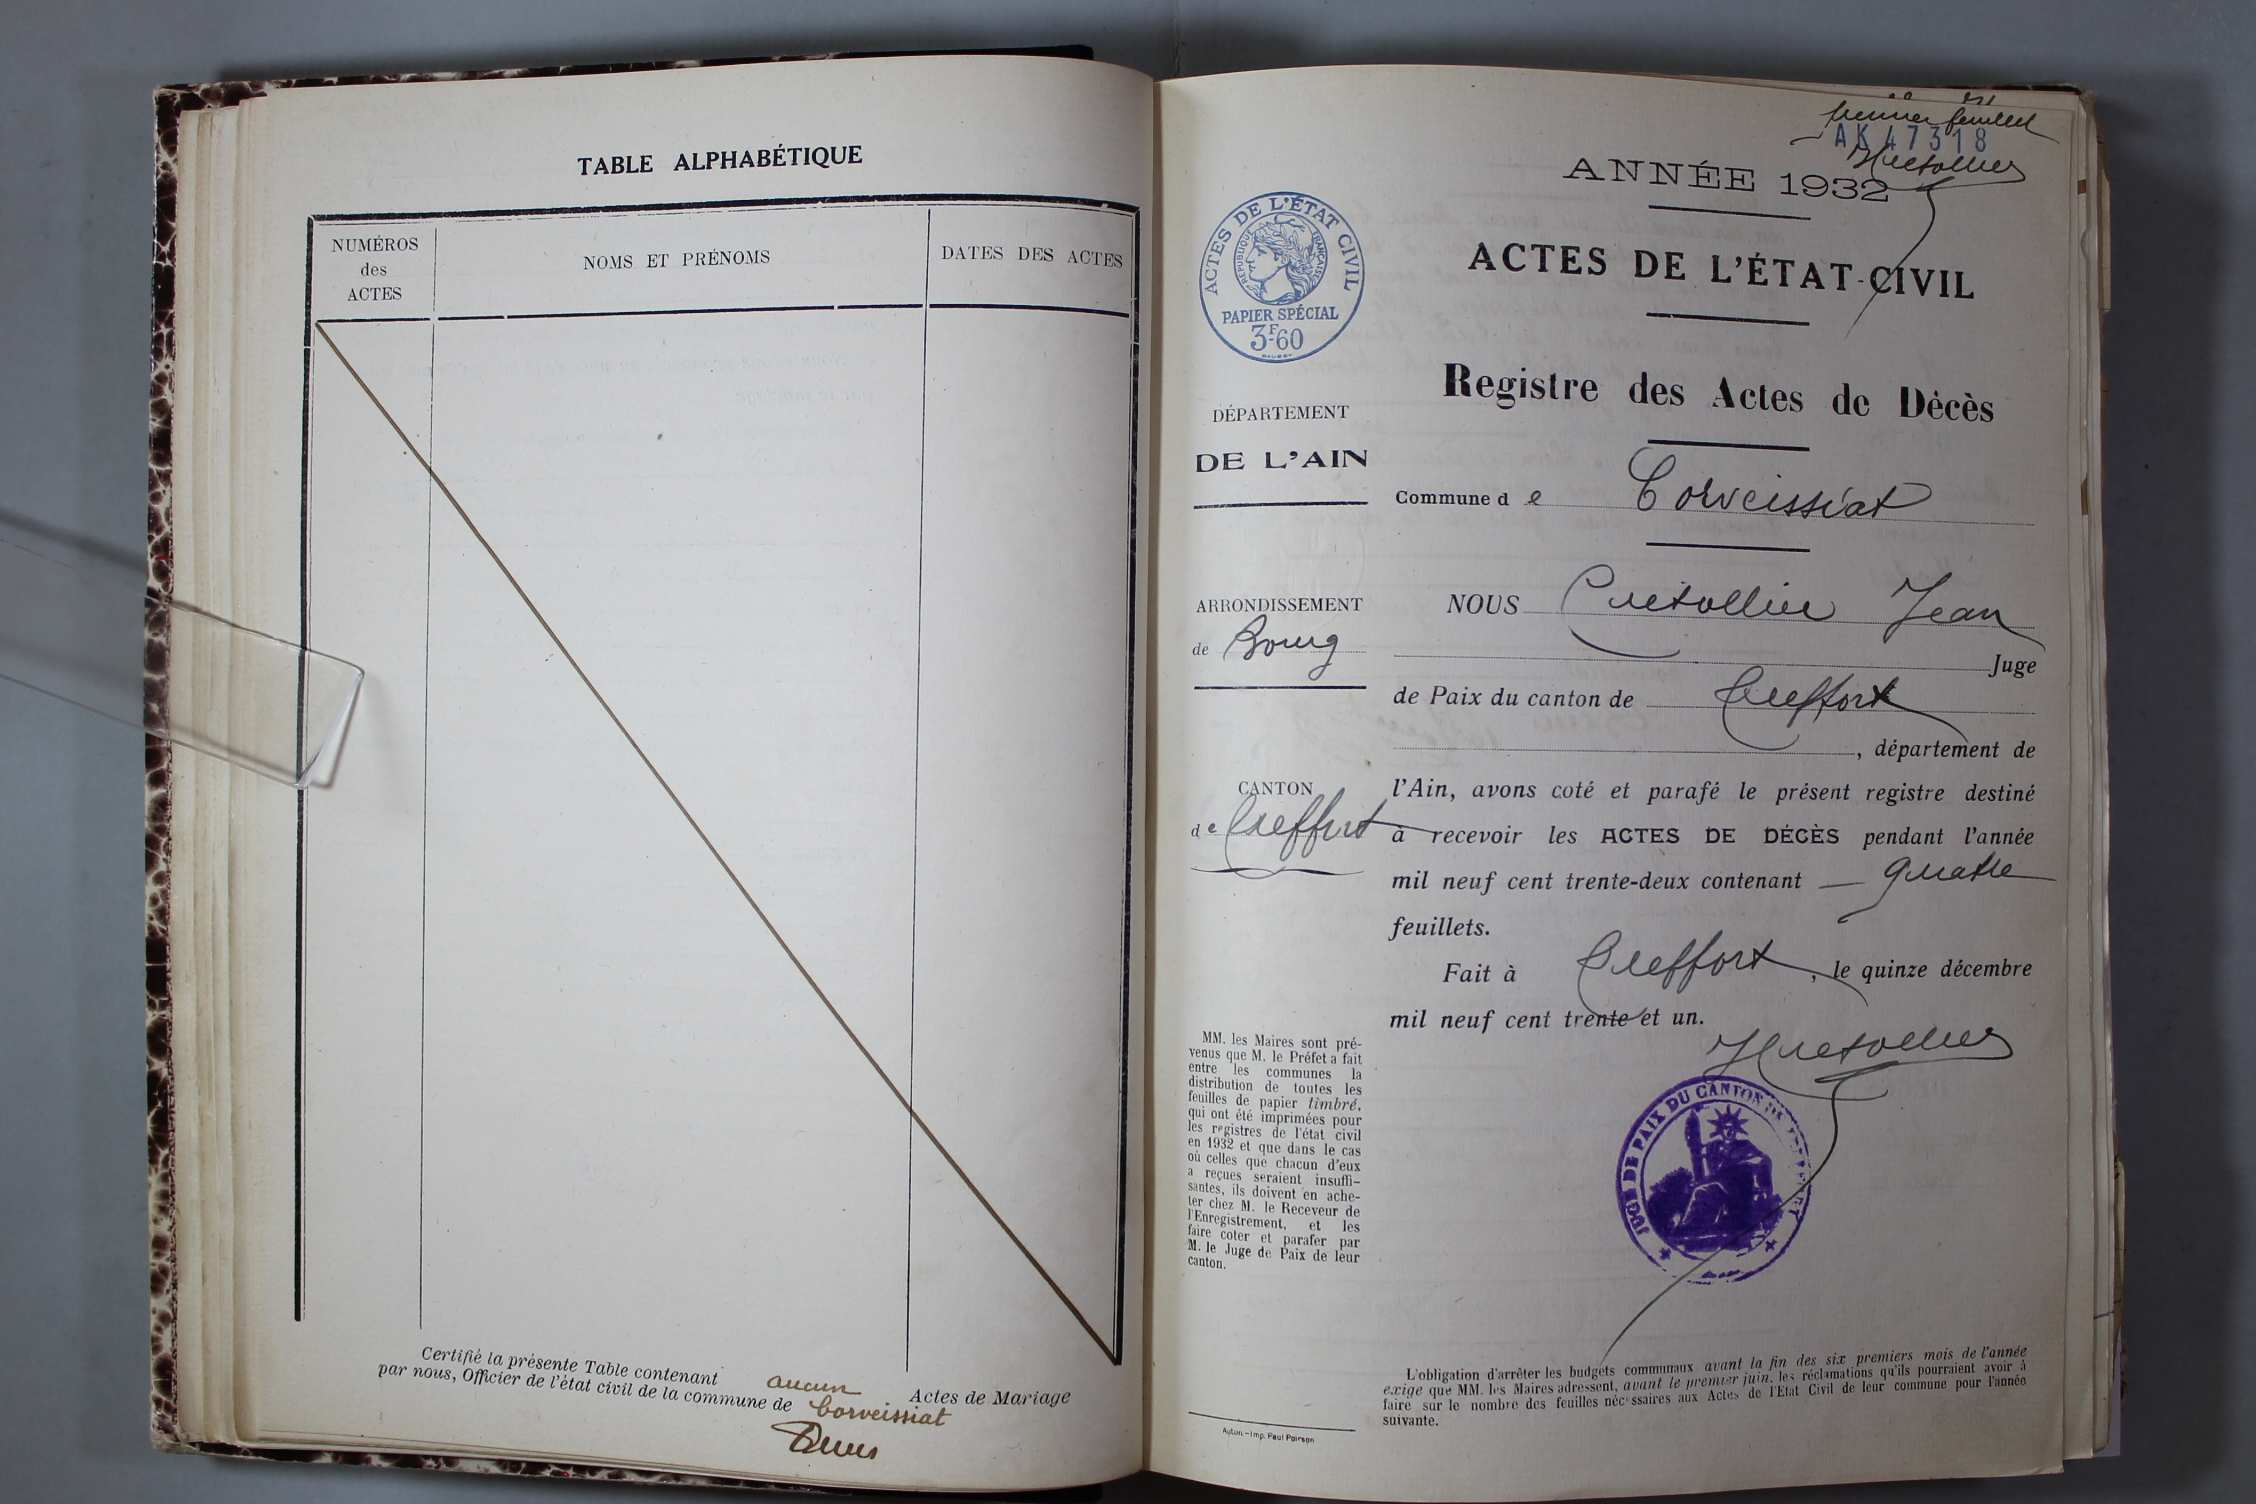 TABLE ALPHABÉTIQUE
NUMÉROS
des
ACTES
NOMS ET PRÉNOMS
DATES DES ACTES
Certifié la présente Table contenant aucun Actes de Mariage
par nous, Officier de l'état civil de la commune de Corveissiat
premier feuillet
AK 47318
ANNÉE 1932
ACTES DE L'ÉTAT CIVIL
RÉPUBLIQUE FRANÇAISE
PAPIER SPÉCIAL
3F.60
ACTES DE L'ÉTAT-CIVIL
Registre des Actes de Décès
DÉPARTEMENT
DE L'AIN
Commune de Corveissiat
ARRONDISSEMENT
de Bourg
NOUS Cretollier Jean
Juge
de Paix du canton de Treffort
, département de
CANTON
de Treffort
l'Ain, avons coté et parafé le présent registre destiné
à recevoir les ACTES DE DÉCÈS pendant l'année
mil neuf cent trente-deux contenant quatre
feuillets.
Fait à Treffort, le quinze décembre
mil neuf cent trente et un.
JUGE DE PAIX DU CANTON DE TREFFORT
MM. les Maires sont pré-
venus que M. le Préfet a fait
entre les communes la
distribution de toutes les
feuilles de papier timbré,
qui ont été imprimées pour
les registres de l'état civil
en 1932 et que dans le cas
où celles que chacun d'eux
a reçues seraient insuffi-
santes, ils doivent en ache-
ter chez M. le Receveur de
l'Enregistrement, et les
faire coter et parafer par
M. le Juge de Paix de leur
canton.
L'obligation d'arrêter les budgets communaux avant la fin des six premiers mois de l'année
exige que MM. les Maires adressent, avant le premier juin, les réclamations qu'ils pourraient avoir à
faire sur le nombre des feuilles nécessaires aux Actes de l'Etat Civil de leur commune pour l'année
suivante.
Autun.-Imp. Paul Poirson